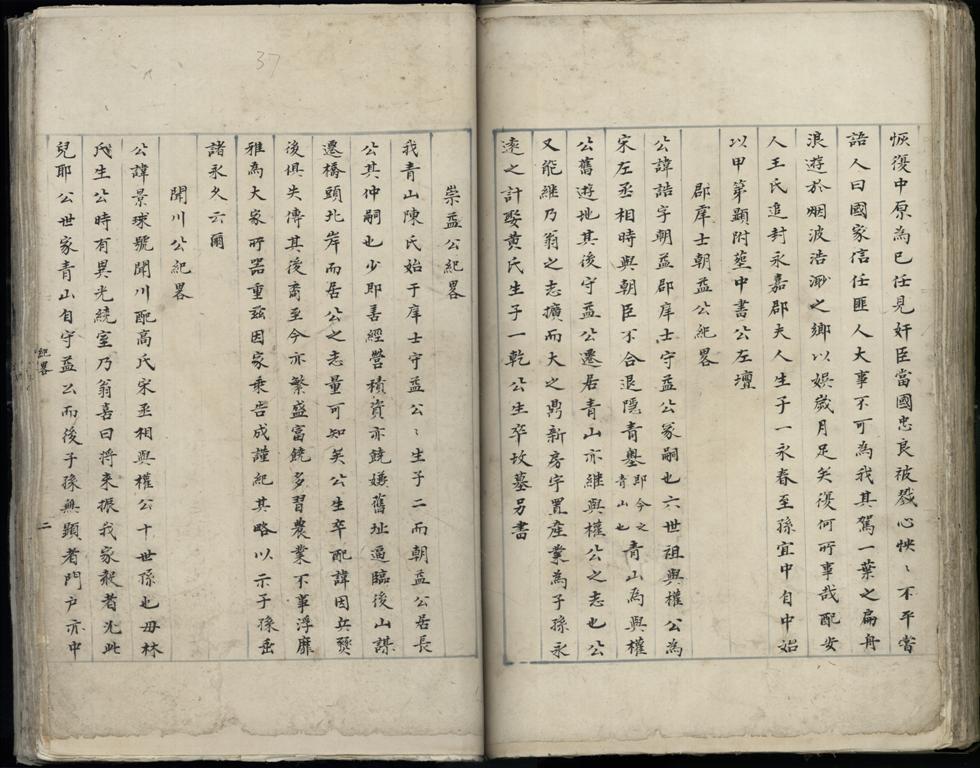 恢復中原為己任見奸臣當國忠良被戮心怏〻不平嘗
語人曰國家信任匪人大事不可為我其駕一葉之扁舟
浪遊於烟波浩渺之鄉以娛歲月足矣復何所事哉配安
人王氏追封永嘉郡夫人生子一永春至孫宜中自中始
以甲第顯附塟中書公左壇
郡庠士朝益公紀畧
公諱誥字朝益郡庠士守益公冢嗣也六世祖與權公為
宋左丞相時與朝臣不合退隱青壆即今之青山也青山為與權
公舊遊地其後守益公遷居青山亦繼與權公之志也公
又能繼乃翁之志擴而大之鼎新房宇置產業為子孫永
遠之計娶黃氏生子一乾公生卒坟墓另書
崇益公紀畧
我青山陳氏始于庠士守益公〻生子二而朝益公居長
公其仲嗣也少即善經營積資亦饒嫌舊址逼臨後山謀
遷橋頭北岸而居公之志量可知矣公生卒配諱因兵燹
後俱失傳其後裔至今亦繁盛富饒多習農業不事浮靡
雅為大家所器重茲因家乘告成謹紀其略以示子孫垂
諸永久云爾
開川公紀畧
公諱景球號開川配高氏宋丞相與權公十世孫也毋林
氏生公時有異光繞室乃翁喜曰将來振我家聲者允此
兒耶公世家青山自守益公而後子孫無顯者門户亦中
紀畧
二
37